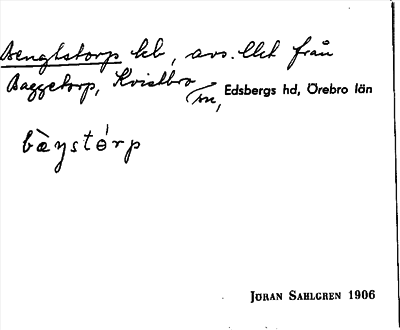 Bengtstorp hb, avs. 1/2kt från
Baggetorp, Kvistbro
sn, Edsbergs hd, Örebro län
bæŋstórp
JÖRAN SAHLGREN 1906